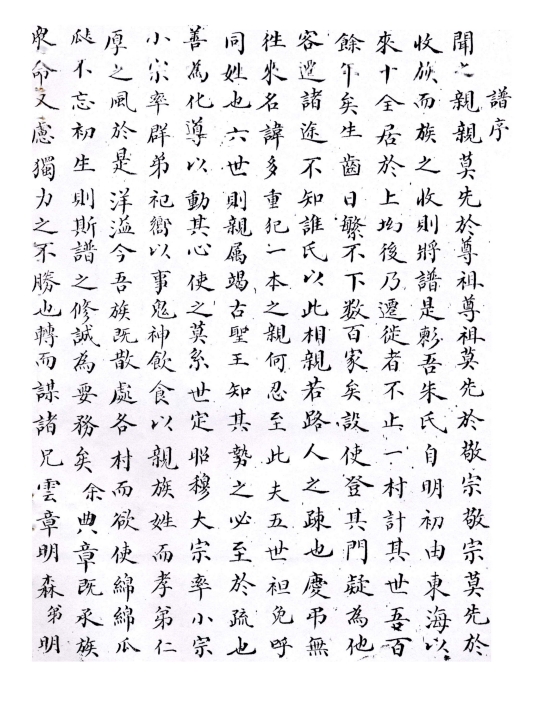 譜序
聞之親親莫先於尊祖尊祖莫先於敬宗敬宗莫先於
收族而族之收則將譜是彰吾朱氏自明初由東海以
來十全居於上均後乃遷徙者不止一村計其世吾百
餘年矣生齒日繁不下数百家矣設使登其門疑為他
容遇諸途不知誰氏以此相親若路人之疎也慶弔無
徃來名諱多重犯一本之親何忍至此夫五世袒免呼
同姓也六世則親属竭古聖王知其勢之必至於疏也
善為化導以動其心使之莫系世定昭穆大宗率小宗
小宗率群弟祀嚮以事鬼神飲食以親族姓而孝弟仁
厚之風於是洋溢今吾族既散處各村而欲使綿綿瓜
瓞不忘初生則斯譜之修誠為要務矣余典章既承族
衆命又慮獨力之不勝也轉而謀諸兄雲章明森弟明